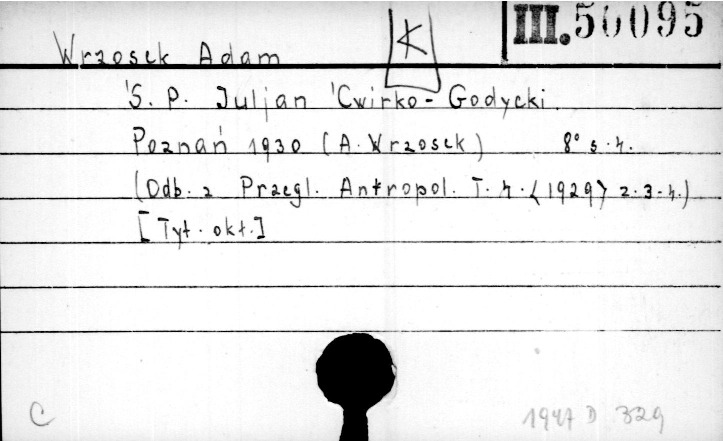 III. 50095
K
Wrzosek Adam
Ś. P. Juljan Ćwirko-Godycki.
Poznań 1930 (A. Wrzosek) 8° s. 4.
(Odb. z Przegl. Antropol. T. 4. <1929> z. 3-4.)
[Tyt. okł.]
C 1947 D 329